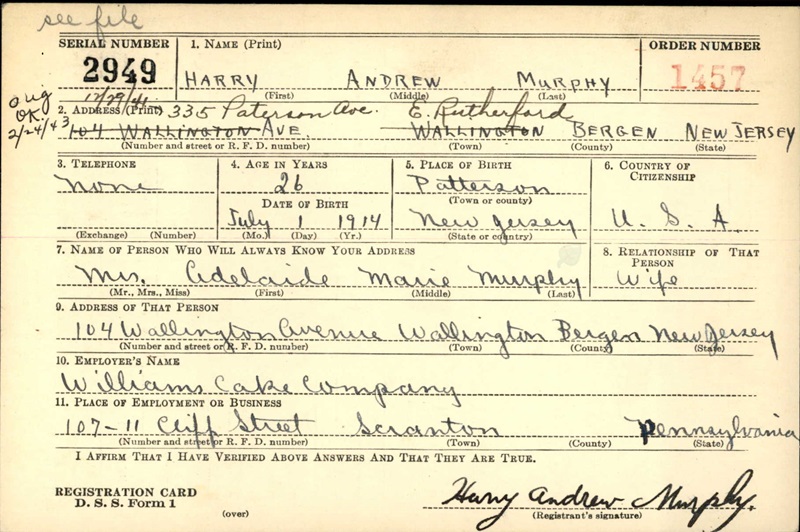 see file
SERIAL NUMBER 1. NAME (Print) ORDER NUMBER
2949 HARRY ANDREW MURPHY 1457
(First) (Middle) (Last)
12/29/41 335 Paterson Ave. E. Rutherford
2. ADDRESS (Print)
OK
2/24/43
104 WALLINGTON AVE. WALLINGTON BERGEN NEW JERSEY
(Number and street or R. F. D. number) (Town) (County) (State)
3. TELEPHONE 4. AGE IN YEARS 5. PLACE OF BIRTH 6. COUNTRY OF CITIZENSHIP
None 26 Patterson
(Town or county)
DATE OF BIRTH
July 1 1914 New Jersey U. S. A.
(Exchange) (Number) (Mo.) (Day) (Yr.) (State or country)
7. NAME OF PERSON WHO WILL ALWAYS KNOW YOUR ADDRESS 8. RELATIONSHIP OF THAT PERSON
Mrs. Adelaide Marie Murphy Wife
(Mr., Mrs., Miss) (First) (Middle) (Last)
9. ADDRESS OF THAT PERSON
104 Wallington Avenue Wallington Bergen New Jersey
(Number and street or R. F. D. number) (Town) (County) (State)
10. EMPLOYER'S NAME
Williams Cake Company
11. PLACE OF EMPLOYMENT OR BUSINESS
107-11 Cliff Street Scranton Pennsylvania
(Number and street or R. F. D. number) (Town) (County) (State)
I AFFIRM THAT I HAVE VERIFIED ABOVE ANSWERS AND THAT THEY ARE TRUE.
REGISTRATION CARD
D. S. S. Form 1 Harry Andrew Murphy.
(over) (Registrant's signature)